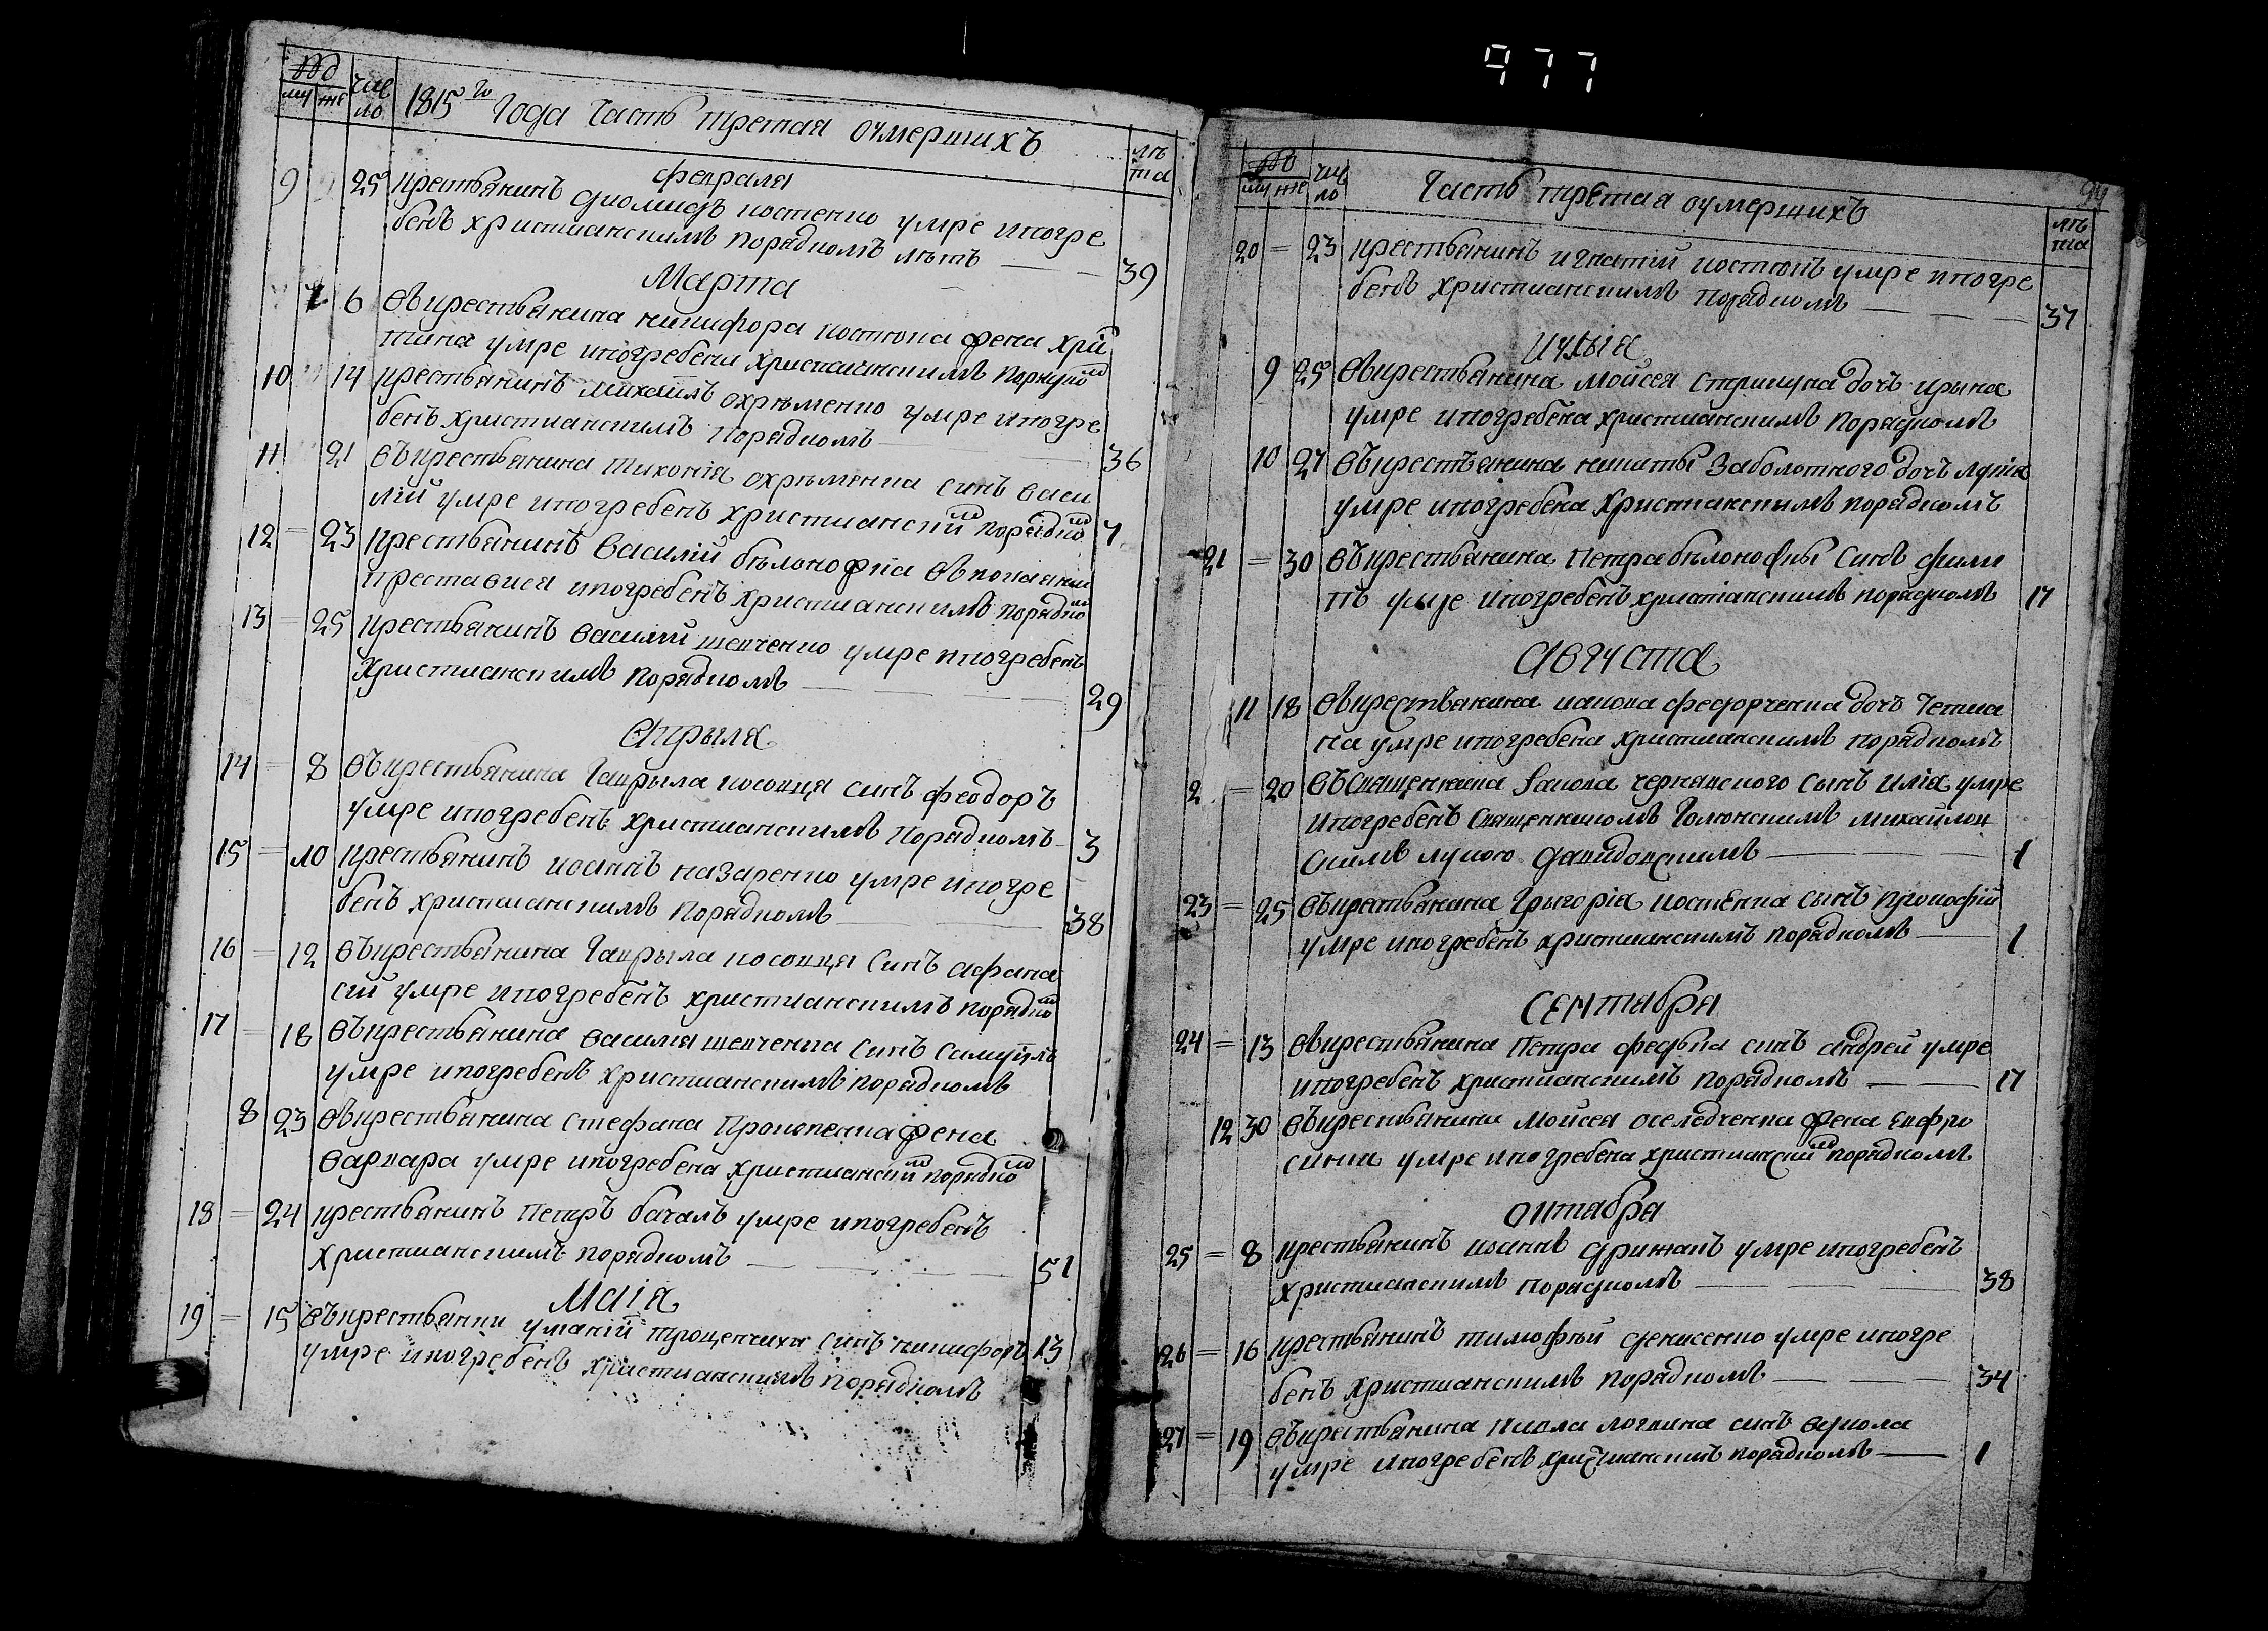 977
му же чис ло 1815 го Года Часть третая оумершихъ лѣ та
февраля
9 25 крестьянинъ Диомидъ костенко умре ипогре
бенъ христианскимъ порядкомъ лѣтъ 39
Марта
7 6 Въкрестьянина никифора костюка жена хри
тина умре ипогребена христианскимъ
10 14 крестьянинъ михаилъ охрѣменко умре ипогре
бенъ христианскимъ порядкомъ 36
11 21 Въкрестьянина тихонія охрѣменка синъ васи
лій умре ипогребенъ христианским порядком 7
12 = 23 крестьянинъ Василій бѣлоножка
преставися ипогребенъ христианскимъ порядком
13 = 25 крестьянинъ василий шевченко умре ипогребенъ
христианскимъ порядкомъ 29
Апрыля
14 = 8 Въкрестьянина Гаврыла носовця синъ феодоръ
умре ипогребенъ христианскимъ порядкомъ 3
15 = 10 крестьянинъ иоаннъ назаренко умре ипогре
бенъ христианскимъ порядкомъ 38
16 = 12 Въкрестьянина Гаврыла носовця синъ афана
сий умре ипогребенъ христианскимъ порядком
17 = 18 Въкрестьянина василия шевченка синъ самуилъ
умре ипогребенъ христианскимъ порядкомъ
8 23 Въкрестьянина стефана Прокопенка жена
варвара умре ипогребена христианским порядком
18 = 24 крестьянинъ Петръ бачалъ умре ипогребенъ
христианскимъ порядкомъ 51
Маія
19 = 15 Въкрестьянки троценчихи синъ никифоръ 13
умре ипогребенъ християнскимъ порядкомъ
99
му же чис ло Часть третая оумершихъ лѣ та
20 = 23 крестьянинъ игнатий костюкъ умре ипогре
бенъ християнскимъ порядкомъ 37
иулія
9 25 Въкрестьянина Мойсея стрикуна дочъ ирына
умре ипогребена християнскимъ порядкомъ
10 27 Въкрестьянина никиты Заболотного дочъ
умре ипогребена християнскимъ порядкомъ
21 = 30 Въкрестьянина Петра бѣлоножкы Синъ фили
пъ умре ипогребенъ христіанскимъ порядкомъ 17
Августа
11 18 Въкрестьянина иакова федорченка дочъ Тетиа
на умре ипогребена християнскимъ порядкомъ
2 = 20 ВъСвященника Іакова чернявского сынъ илія умре
ипогребенъ Священникомъ Голюнскимъ михайлов
скимъ лукою давидовскимъ 1
23 = 25 Въкрестьянина Грыгорія костенка сынъ прокофий
умре ипогребенъ християнскимъ порядкомъ 1
Сентября
24 = 13 Въкрестьянина Петра федька синъ андрей умре
ипогребенъ християнскимъ порядкомъ 17
12 30 Въкрестьянина Мойсея оселедченка жена евфро
синия умре ипогребена християнским порядкомъ
Октября
25 = 8 крестьянинъ иоаннъ дрижакъ умре ипогребенъ
християнскимъ порядкомъ 38
26 = 16 крестьянинъ тимофѣй денисенко умре ипогре
бенъ християнскимъ порядкомъ 34
27 = 19 Въкрестьянина Павла логвина синъ вукола
умре ипогребенъ християнскимъ порядкомъ 1